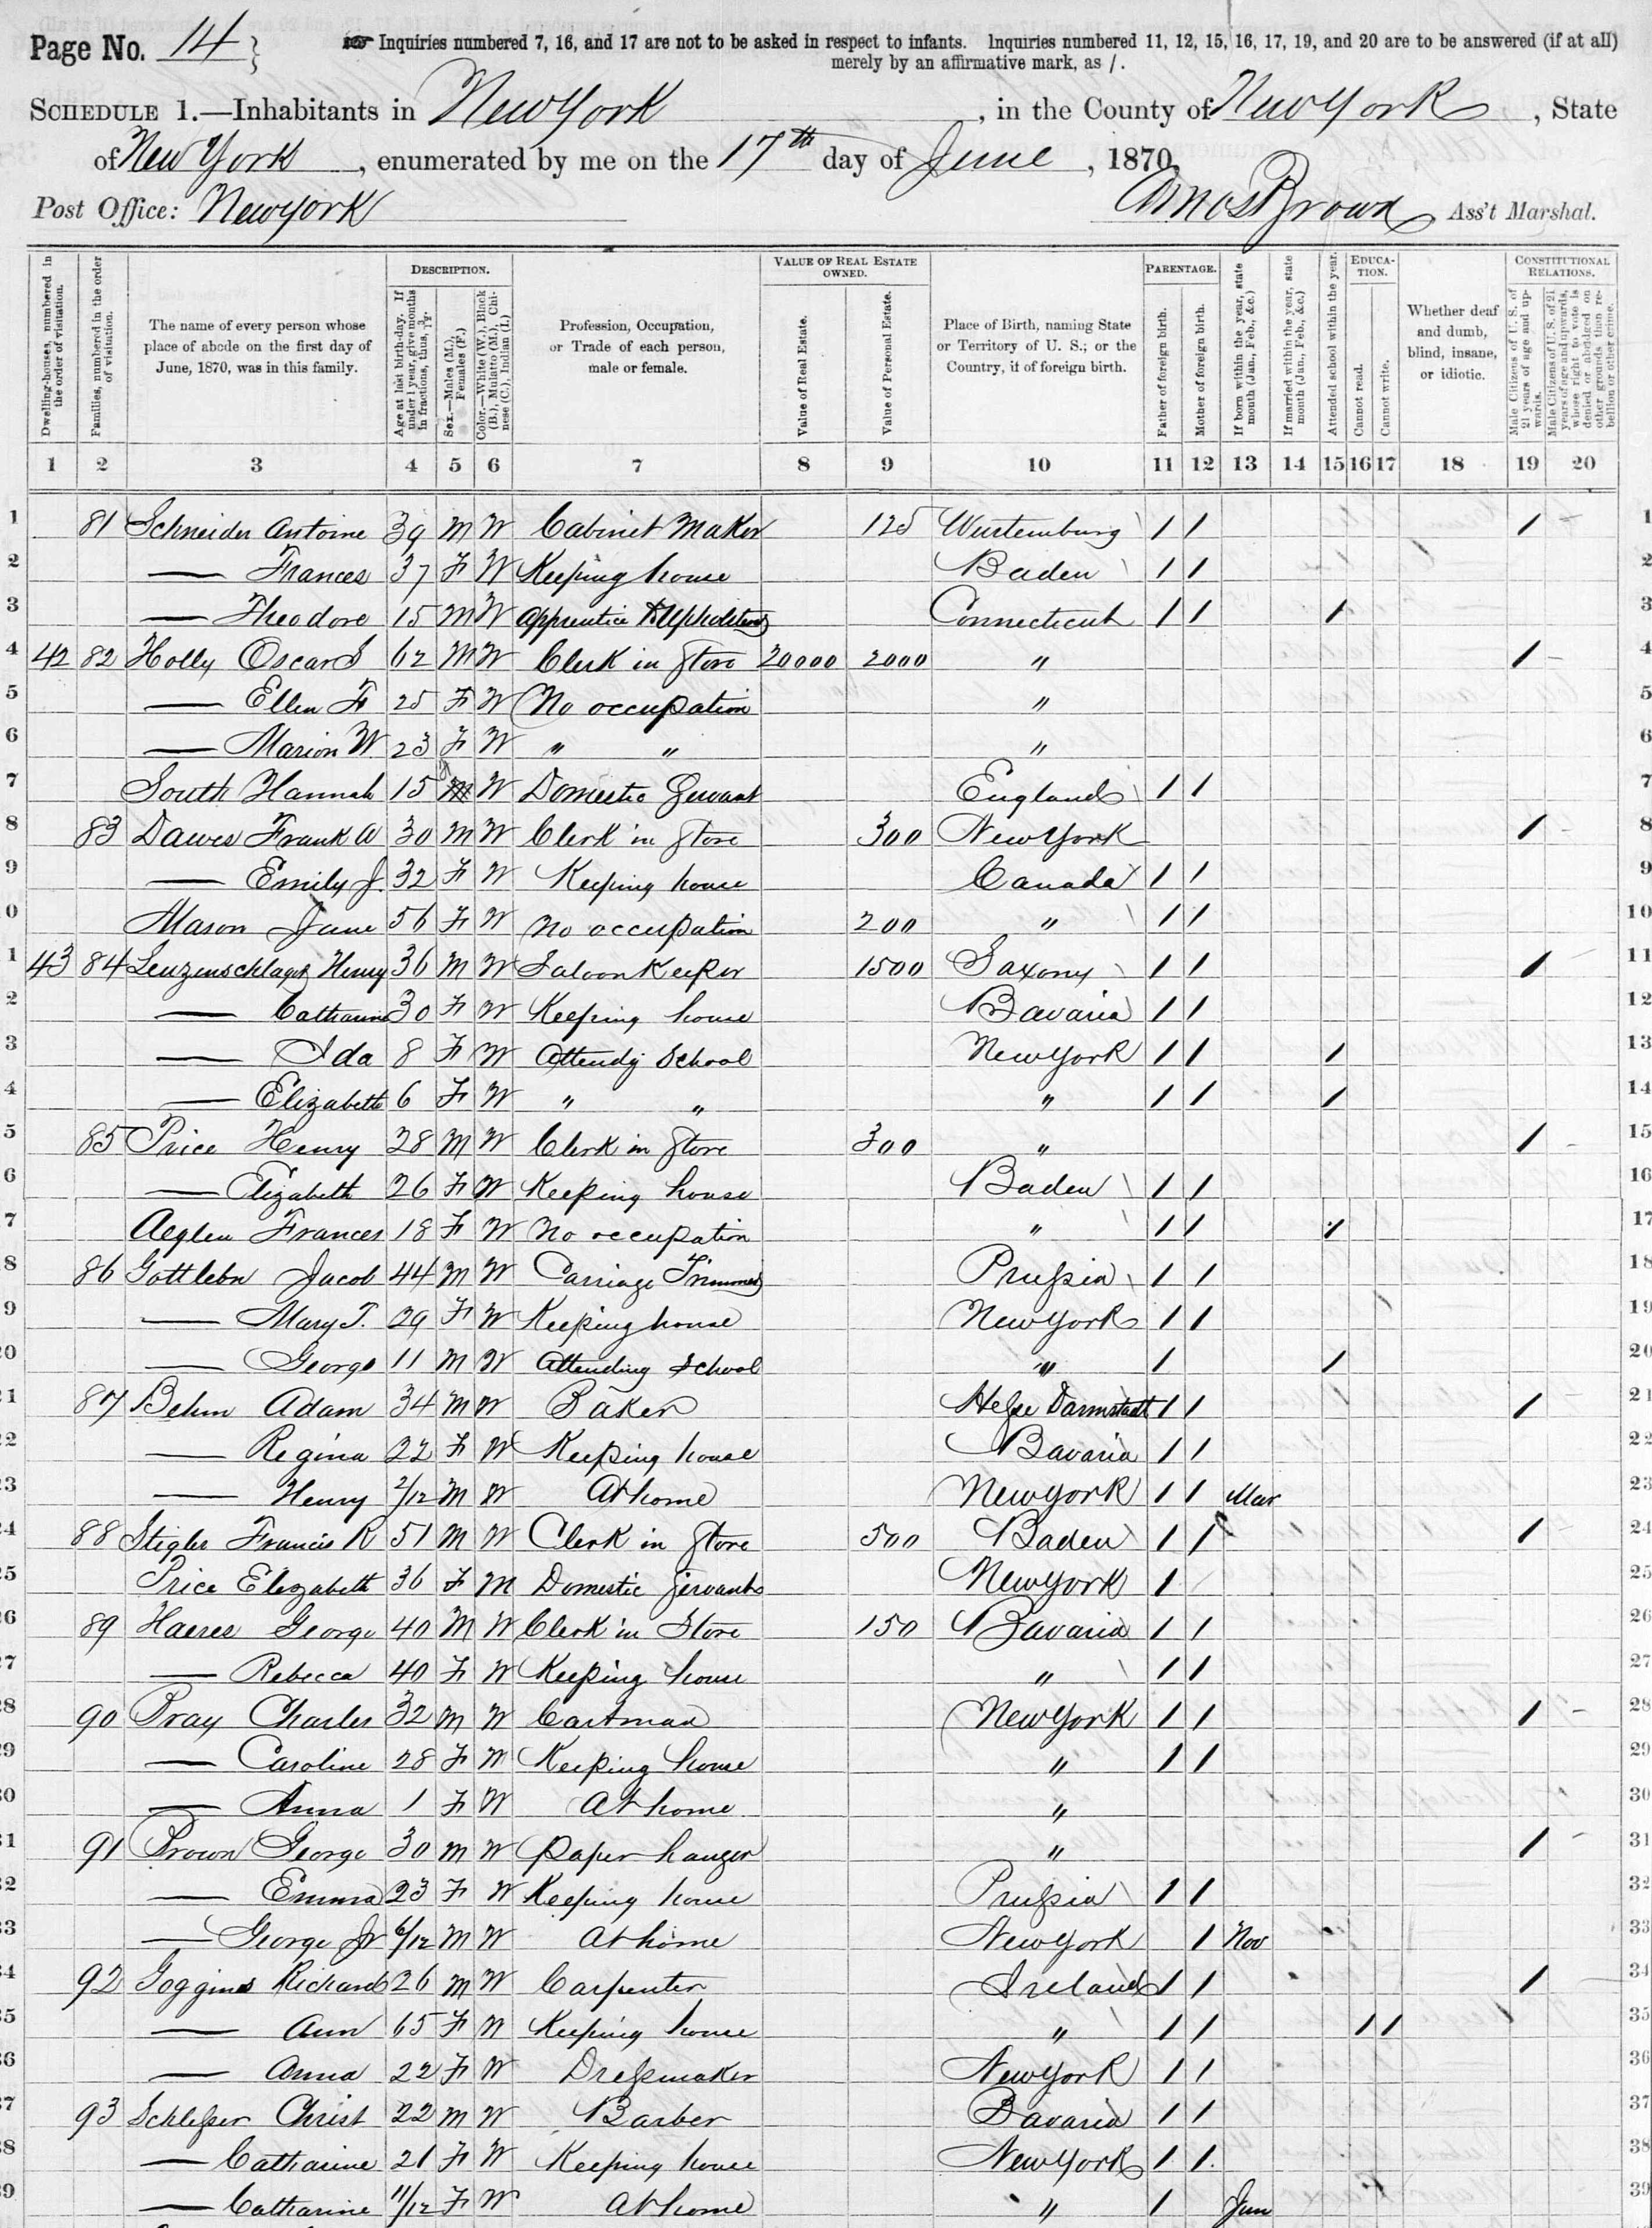 Page No. 14
☞ Inquiries numbered 7, 16, and 17 are not to be asked in respect to infants. Inquiries numbered 11, 12, 15, 16, 17, 19, and 20 are to be answered (if at all)
merely by an affirmative mark, as /.
SCHEDULE 1.—Inhabitants in New York, in the County of New York, State
of New York, enumerated by me on the 17th day of June, 1870.
Post Office: New york Amos Brown Ass't Marshal.
DESCRIPTION. VALUE OF REAL ESTATE OWNED. PARENTAGE. EDUCA-TION. CONSTITUTIONAL RELATIONS.
Dwelling-houses, numbered in the order of visitation.
Families, numbered in the order of visitation.
The name of every person whose place of abode on the first day of June, 1870, was in this family.
Age at last birth-day. If under 1 year, give months in fractions, thus, 3/12
Sex.—Males (M.), Females (F.)
Color.—White (W.), Black (B.), Mulatto (M.), Chinese (C.), Indian (I.)
Profession, Occupation, or Trade of each person, male or female.
Value of Real Estate.
Value of Personal Estate.
Place of Birth, naming State or Territory of U. S.; or the Country, if of foreign birth.
Father of foreign birth.
Mother of foreign birth.
If born within the year, state month (Jan., Feb., &c.)
If married within the year, state month (Jan., Feb., &c.)
Attended school within the year.
Cannot read.
Cannot write.
Whether deaf and dumb, blind, insane, or idiotic.
Male Citizens of U. S. of 21 years of age and upwards.
Male Citizens of U. S. of 21 years of age and upwards, whose right to vote is denied or abridged on other grounds than rebellion or other crime.
1 2 3 4 5 6 7 8 9 10 11 12 13 14 15 16 17 18 19 20
1 81 Schneider Antoine 39 M W Cabinet Maker 125 Wurtemburg / / / 1
2 — Frances 37 F W Keeping house Baden / / 2
3 — Theodore 15 M W Apprentice Connecticut / / / 3
4 42 82 Holly Oscar S 62 M W Clerk in Store 20000 2000 " / 4
5 — Ellen F 25 F W No occupation " 5
6 — Marion W. 23 F W " " " 6
7 South Hannah 15 F W Domestic Servant England / / 7
8 83 Dawes Frank W 30 M W Clerk in Store 300 New York / 8
9 — Emily J. 32 F W Keeping house Canada / / 9
0 Mason Jane 56 F W No occupation 200 " / / 10
1 43 84 Leuzenschlager Henry 36 M W Saloon Keeper 1500 Saxony / / / 11
2 — Catharine 30 F W Keeping house Bavaria / / 12
3 — Ida 8 F W Attendg School New York / / / 13
4 — Elizabeth 6 F W " " " / / / 14
5 85 Price Henry 28 M W Clerk in Store 300 " / 15
6 — Elizabeth 26 F W Keeping house Baden / / 16
7 Frances 18 F W No occupation " / / / 17
8 86 Gottleber Jacob 44 M W Carriage Trimmer Prussia / / 18
9 — Mary T. 29 F W Keeping house New York / / 19
20 — George 11 M W Attending School " / / 20
21 87 Behm Adam 34 M W Baker Hesse Darmstadt / / / 21
22 — Regina 22 F W Keeping house Bavaria / / 22
23 — Henry 2/12 M W At home New York / / Mar 23
24 88 Stigler Francis R 51 M W Clerk in Store 500 Baden / / / 24
25 Price Elizabeth 36 F M Domestic Servant New York / 25
26 89 Haeres George 40 M W Clerk in Store 150 Bavaria / / 26
27 — Rebecca 40 F W Keeping house " / / 27
28 90 Pray Charles 32 M W Cartman New York / / / 28
29 — Caroline 28 F W Keeping house " / / 29
30 — Anna 1 F W At home " 30
31 91 Brown George 30 M W Paper hanger " / 31
32 — Emma 23 F W Keeping house Prussia / / 32
33 — George Jr 6/12 M W At home New York / Nov 33
34 92 Goggins Richard 26 M W Carpenter Ireland / / / 34
35 — Ann 65 F W Keeping house " / / / / 35
36 — Anna 22 F W Dressmaker New York / / 36
37 93 Schlesser Christ 22 M W Barber Bavaria / / 37
38 — Catharine 21 F W Keeping house New York / / 38
39 — Catharine 11/12 F W At home " / Jun 39